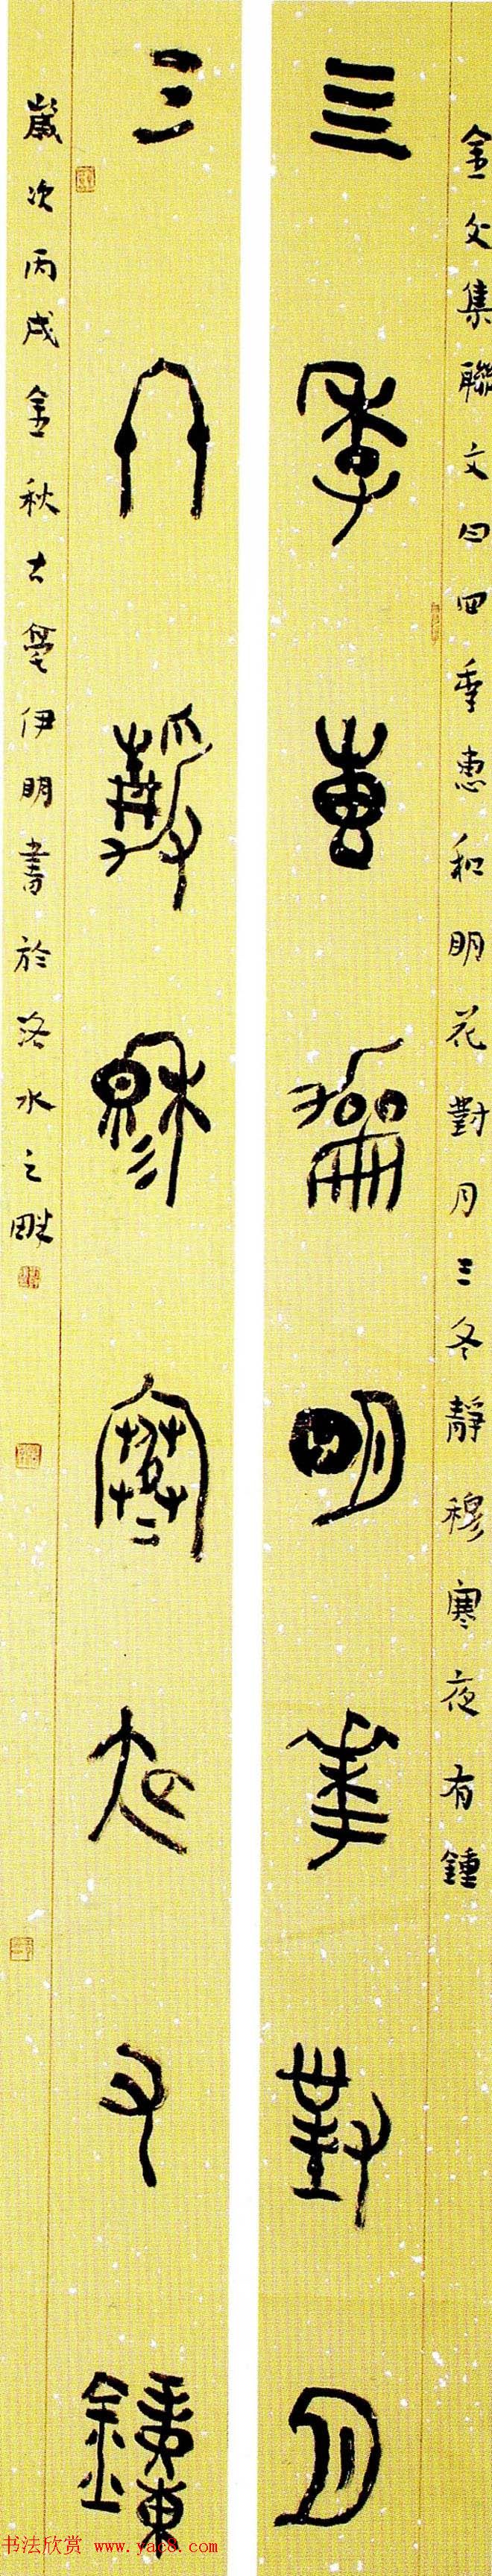 金文集聯文曰四季惠和明花對月三冬靜穆寒夜有鍾
三季惠龢明華對月
三冬靜穆寒夜又鐘
歲次丙戌金秋古亳伊明書於洛水之畔
书法欣赏 www.yac8.com